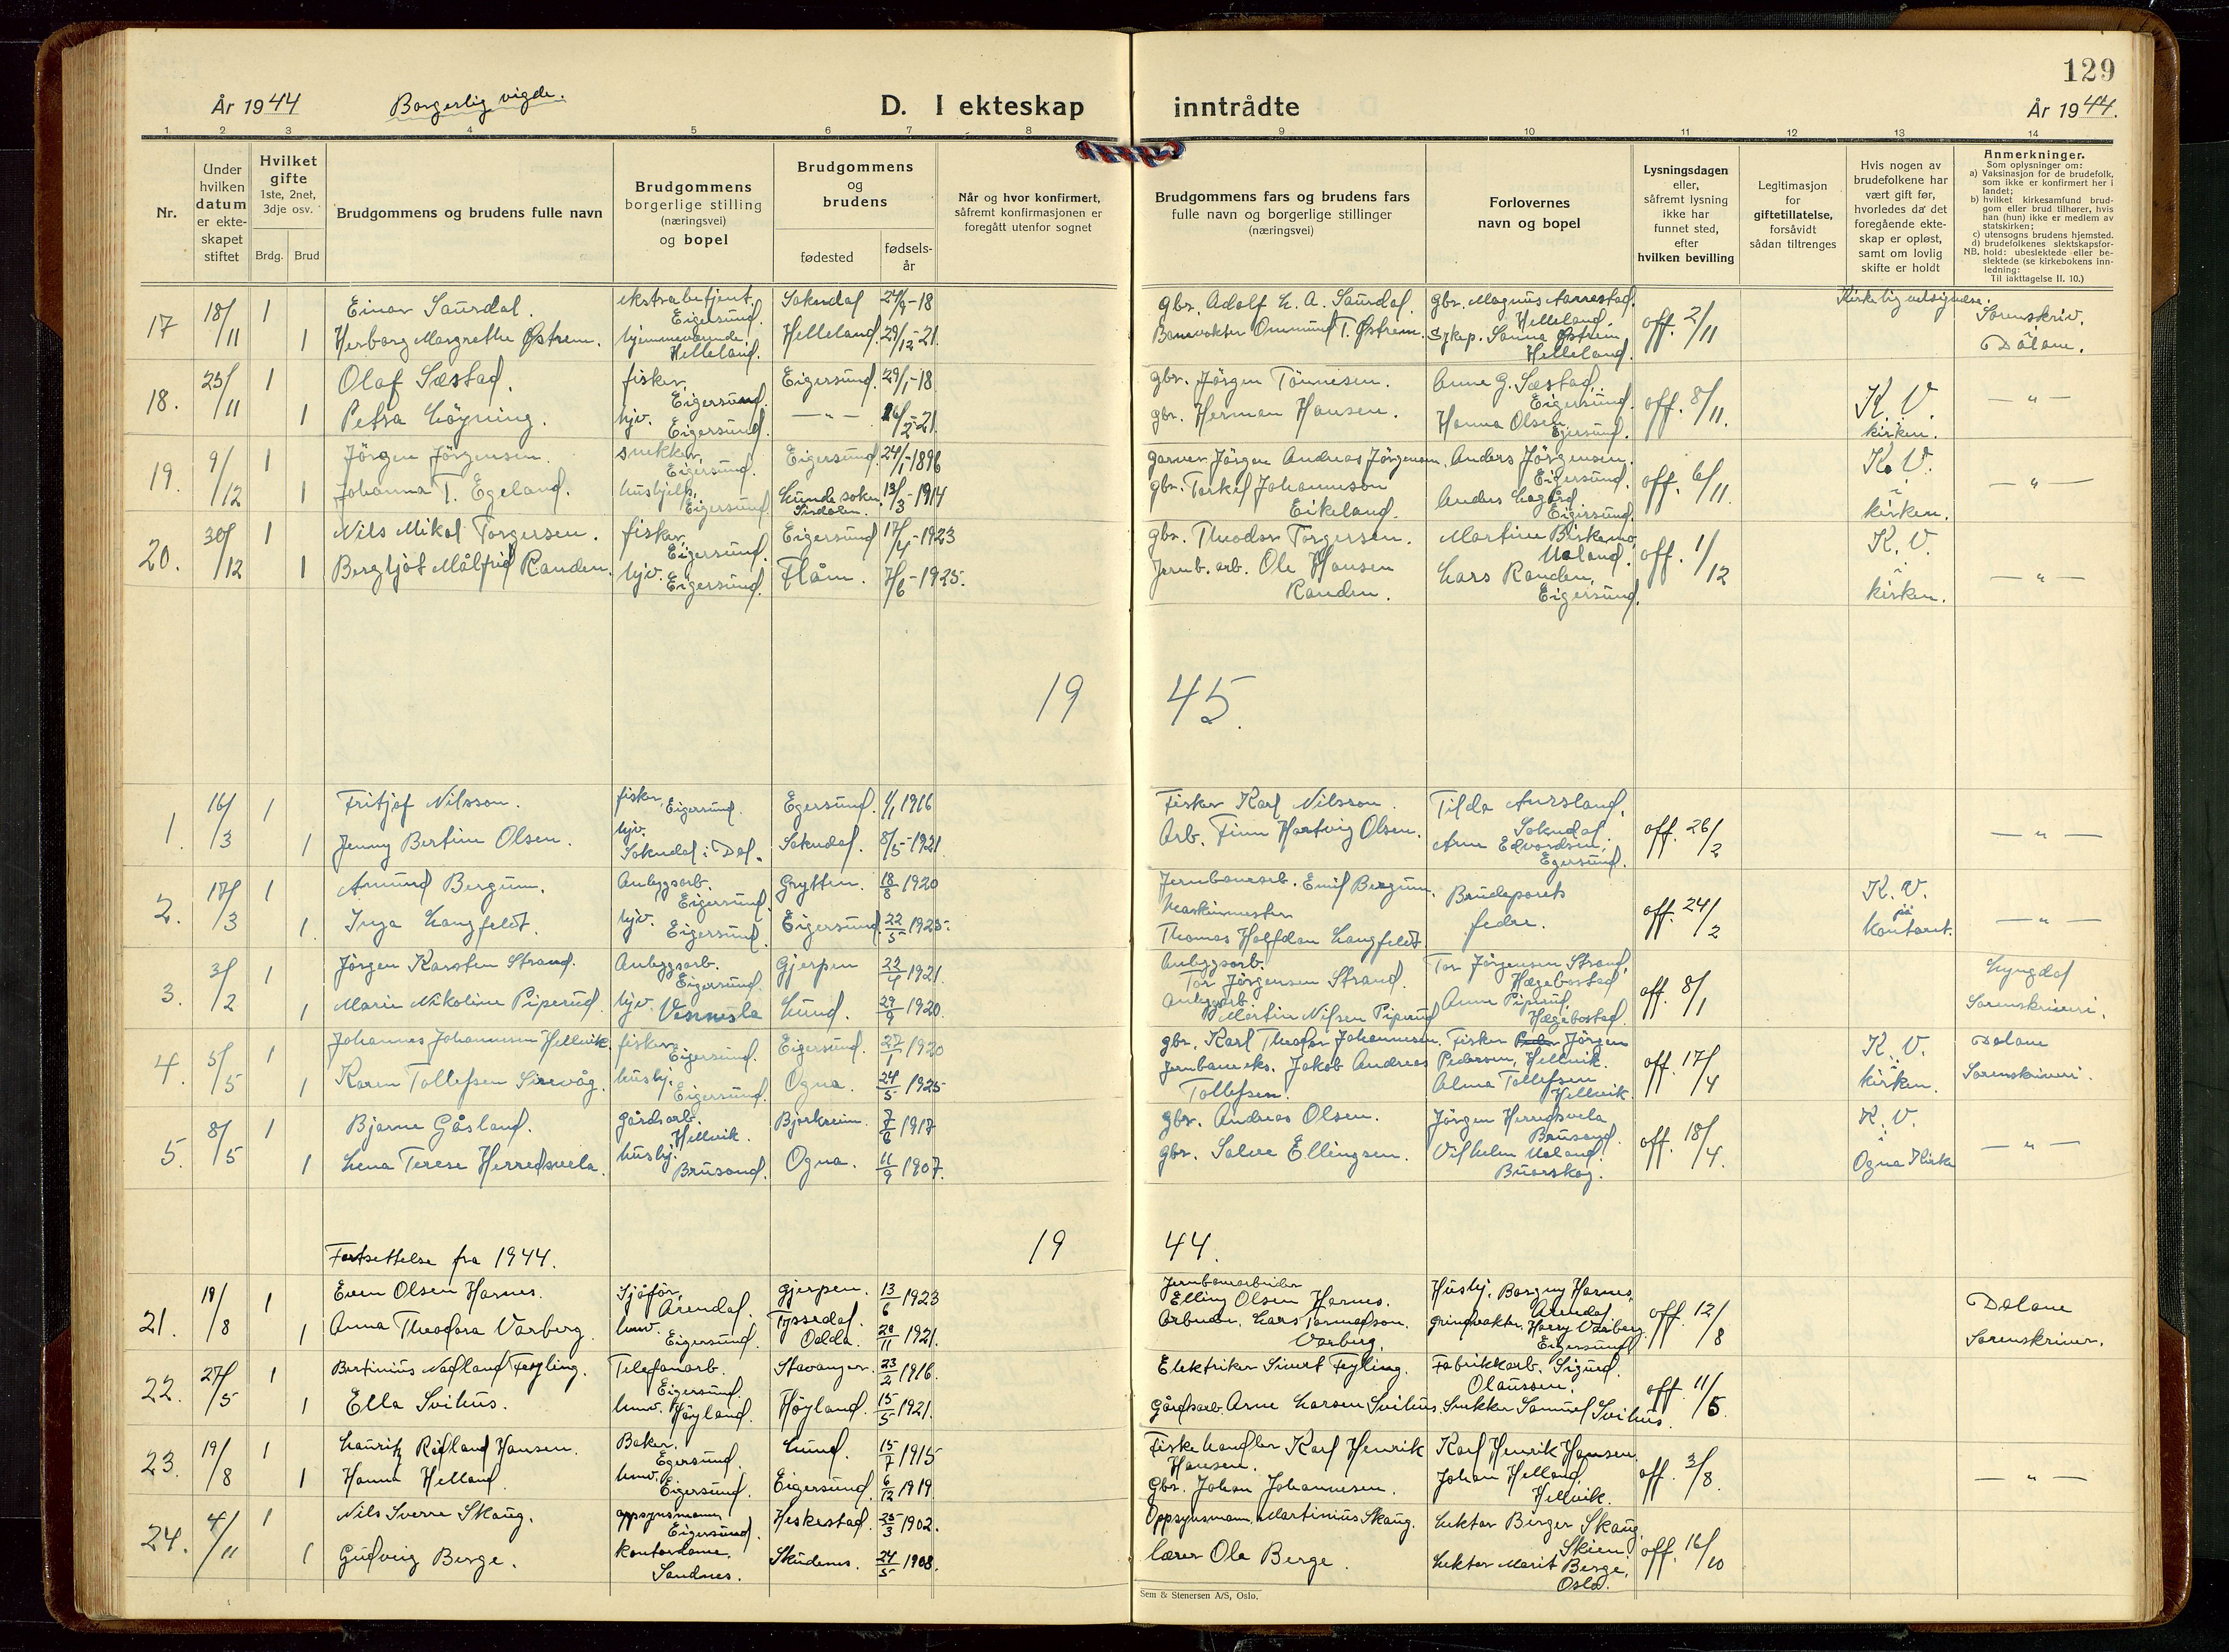 129
År 1944
Borgerlig vigde.
D. I ekteskap inntrådte
År 1944.
1 2 3 4 5 6 7 8 9 10 11 12 13 14
Nr.
Under hvilken datum er ekteskapet stiftet
Hvilket gifte 1ste, 2net, 3dje osv.
Brdg. Brud
Brudgommens og brudens fulle navn
Brudgommens borgerlige stilling (næringsvei) og bopel
Brudgommens og brudens
fødested
fødsels-år
Når og hvor konfirmert, såfremt konfirmasjonen er foregått utenfor sognet
Brudgommens fars og brudens fars fulle navn og borgerlige stillinger (næringsvei)
Forlovernes navn og bopel
Lysningsdagen eller, såfremt lysning ikke har funnet sted, efter hvilken bevilling
Legitimasjon for giftetillatelse, forsåvidt sådan tiltrenges
Hvis nogen av brudefolkene har vært gift før, hvorledes da det foregående ekteskap er opløst, samt om lovlig skifte er holdt
Anmerkninger.
Som oplysninger om:
a) Vaksinasjon for de brudefolk, som ikke er konfirmert her i landet;
b) hvilket kirkesamfund brudgom eller brud tilhører, hvis han (hun) ikke er medlem av statskirken;
c) utensogns brudens hjemsted.
d) brudefolkenes slektskapsforhold: ubeslektede eller beslektede (se kirkebokens innledning:
NB.
Til iakttagelse II. 10.)
17 18/11 1 Einar Saurdal. ekstrabetjent, Eigersund. Sokndal 24/9-18 gbr. Adolf L. A. Saurdal. gbr. Magnus Aarrestad, Helleland. off. 2/11 Kirkelig velsignelse. Sorenskriv. Dalane.
1 Herborg Margrethe Østrem. hjemmeværende, Helleland. Helleland. 29/12-21. Banevokter Ommund T. Østrem. Sykep. Sanna Østrem Helleland.
18. 25/11 1 Olaf Sæstad. fisker, Eigersund. Eigersund. 29/1-18 gbr. Jörgen Tönnesen. Anne G. Sæstad, Eigersund. off. 8/11. K. V. i kirken. — " —
1 Petra Löyning. hjv. Eigersund. — " — 26/2-21. gbr. Herman Hansen. Hanna Olsen, Egersund.
19. 9/12 1 Jörgen Jörgensen. snekker, Eigersund. Eigersund. 24/1-1896 garver Jörgen Andreas Jörgensen. Anders Jörgensen, Eigersund. off. 6/11. K. V. i kirken. — " —
1 Johanna T. Egeland. hushjelp, Eigersund. Lunde sokn, Sirdalen. 13/3-1914 gbr. Torkel Johannesson Eikeland. Anders Lagård, Eigersund.
20. 30/12 1 Nils Mikal Torgersen. fisker, Eigersund. Eigersund 17/4-1923 gbr. Theodor Torgersen. Martine Birkemo, Ualand. off. 1/12 K. V. i kirken. — " —
1 Bergljot Målfrid Randen. hjv. Eigersund. Flåm. 7/6-1925. Jernb. arb. Ole Hansen Randen. Lars Randen, Eigersund.
19 45.
1. 16/3 1 Fritjof Nilsson. fisker, Eigersund. Egersund. 1/1 1916 Fisker Karl Nilsson. Tilda Aursland, Sokndal. off. 26/2 — " —
1 Jenny Bertine Olsen. hjv. Sokndal i Dal. Sokndal. 8/5-1921. Arb. Finn Hartvig Olsen. Arne Edvardsen, Egersund.
2. 17/3 1 Amund Bergum. Anleggsarb. Eigersund. Grytten. 18/8 1920 Jernbanearb. Emil Bergum. Brudeparets fedre. off. 24/2 K. V. på Kontoret. — " —
1. Inga Langfeldt. hjv. Eigersund. Eigersund. 22/5 1925. Maskinmester Thomas Halfdan Langfeldt.
3. 3/2 1 Jörgen Karsten Strand. Anleggsarb. Eigersund. Gjerpen 22/4 1921. Anleggsarb. Tor Jörgensen Strand. Tor Jörgensen Strand, Hægebostad off. 8/1 Lyngdal Sorenskriveri.
1 Marie Nikoline Piperud. hjv. Vennesla Lund. 29/9 1920. Anleggsarb. Martin Nilsen Piperud Anne Piperud, Hægebostad.
4. 5/5 1 Johannes Johannesen Hellvik. fisker, Eigersund. Eigersund. 27/1 1920 gbr. Karl Theodor Johannesen. Fisker Jörgen Pedersen, Hellvik. off. 17/4 K. V. i kirken. Dalane Sorenskriveri.
1 Karen Tollefsen Sirevåg. hushj. Eigersund. Ogna. 24/5 1925 Jernbaneeks. Jakob Andreas Tollefsen. Alma Tollefsen Hellvik.
5. 8/5 1 Bjarne Gåsland. gårdsarb. Hellvik. Bjerkreim. 7/6 1917 gbr. Andreas Olsen. Jörgen Herredsvela Brusand. off. 18/4. K. V. i Ogna Kirke — " —
1 Lena Terese Herredsvela. hushj. Brusand. Ogna. 11/9 1907. gbr. Salve Ellingsen. Vilhelm Ualand, Buarskog.
Fortsettelse fra 1944. 19 44.
21. 19/8 1 Even Olsen Harnes. Sjåför, Arendal. Gjerpen. 13/6 1923 Jernbanearbeider Elling Olsen Harnes. Hushj. Borgny Harnes, Arendal off. 12/8 Dalane Sorenskriver.
1 Anna Theodora Varberg. hmv. Eigersund. Tyssedal, Odda. 28/11 1921. Arbeider, Lars Tormodson. Varberg. grindvokter Harry Varberg, Eigersund
22. 27/5 1 Bertinius Nødland Feyling. Telefonarb. Eigersund. Stavanger. 23/2 1916. Elektriker Sivert Feyling. Fabrikkarb. Sigurd Olaussen. off. 11/5.
1 Ella Svihus. hmv. Höyland. Höyland. 15/5 1921. Gårdsarb. Arne Larsen Svihus. Snekker Samuel Svihus.
23. 19/8 1 Lauritz Rødland Hansen. Baker, Egersund. Lund. 15/7 1915 Fiskehandler Karl Henrik Hansen. Karl Henrik Hansen, off. 3/8. — " —
1 Hanna Helland. hmv. Eigersund. Eigersund. 6/12 1919 Gbr. Johan Johannesen. Johan Helland, Hellvik.
24. 4/11 1 Nils Sverre Skaug. oppsynsmann Eigersund. Heskestad. 25/3 1902. Oppsynsmann Martinius Skaug. Lektor Birger Skaug, Skien off. 16/10
1 Gudveig Berge. Kontordame. Sandnes. Skudenes. 24/5 1908. Lærer Ole Berge. Lektor Marit Berge, Oslo.
Sem & Stenersen A/S, Oslo.